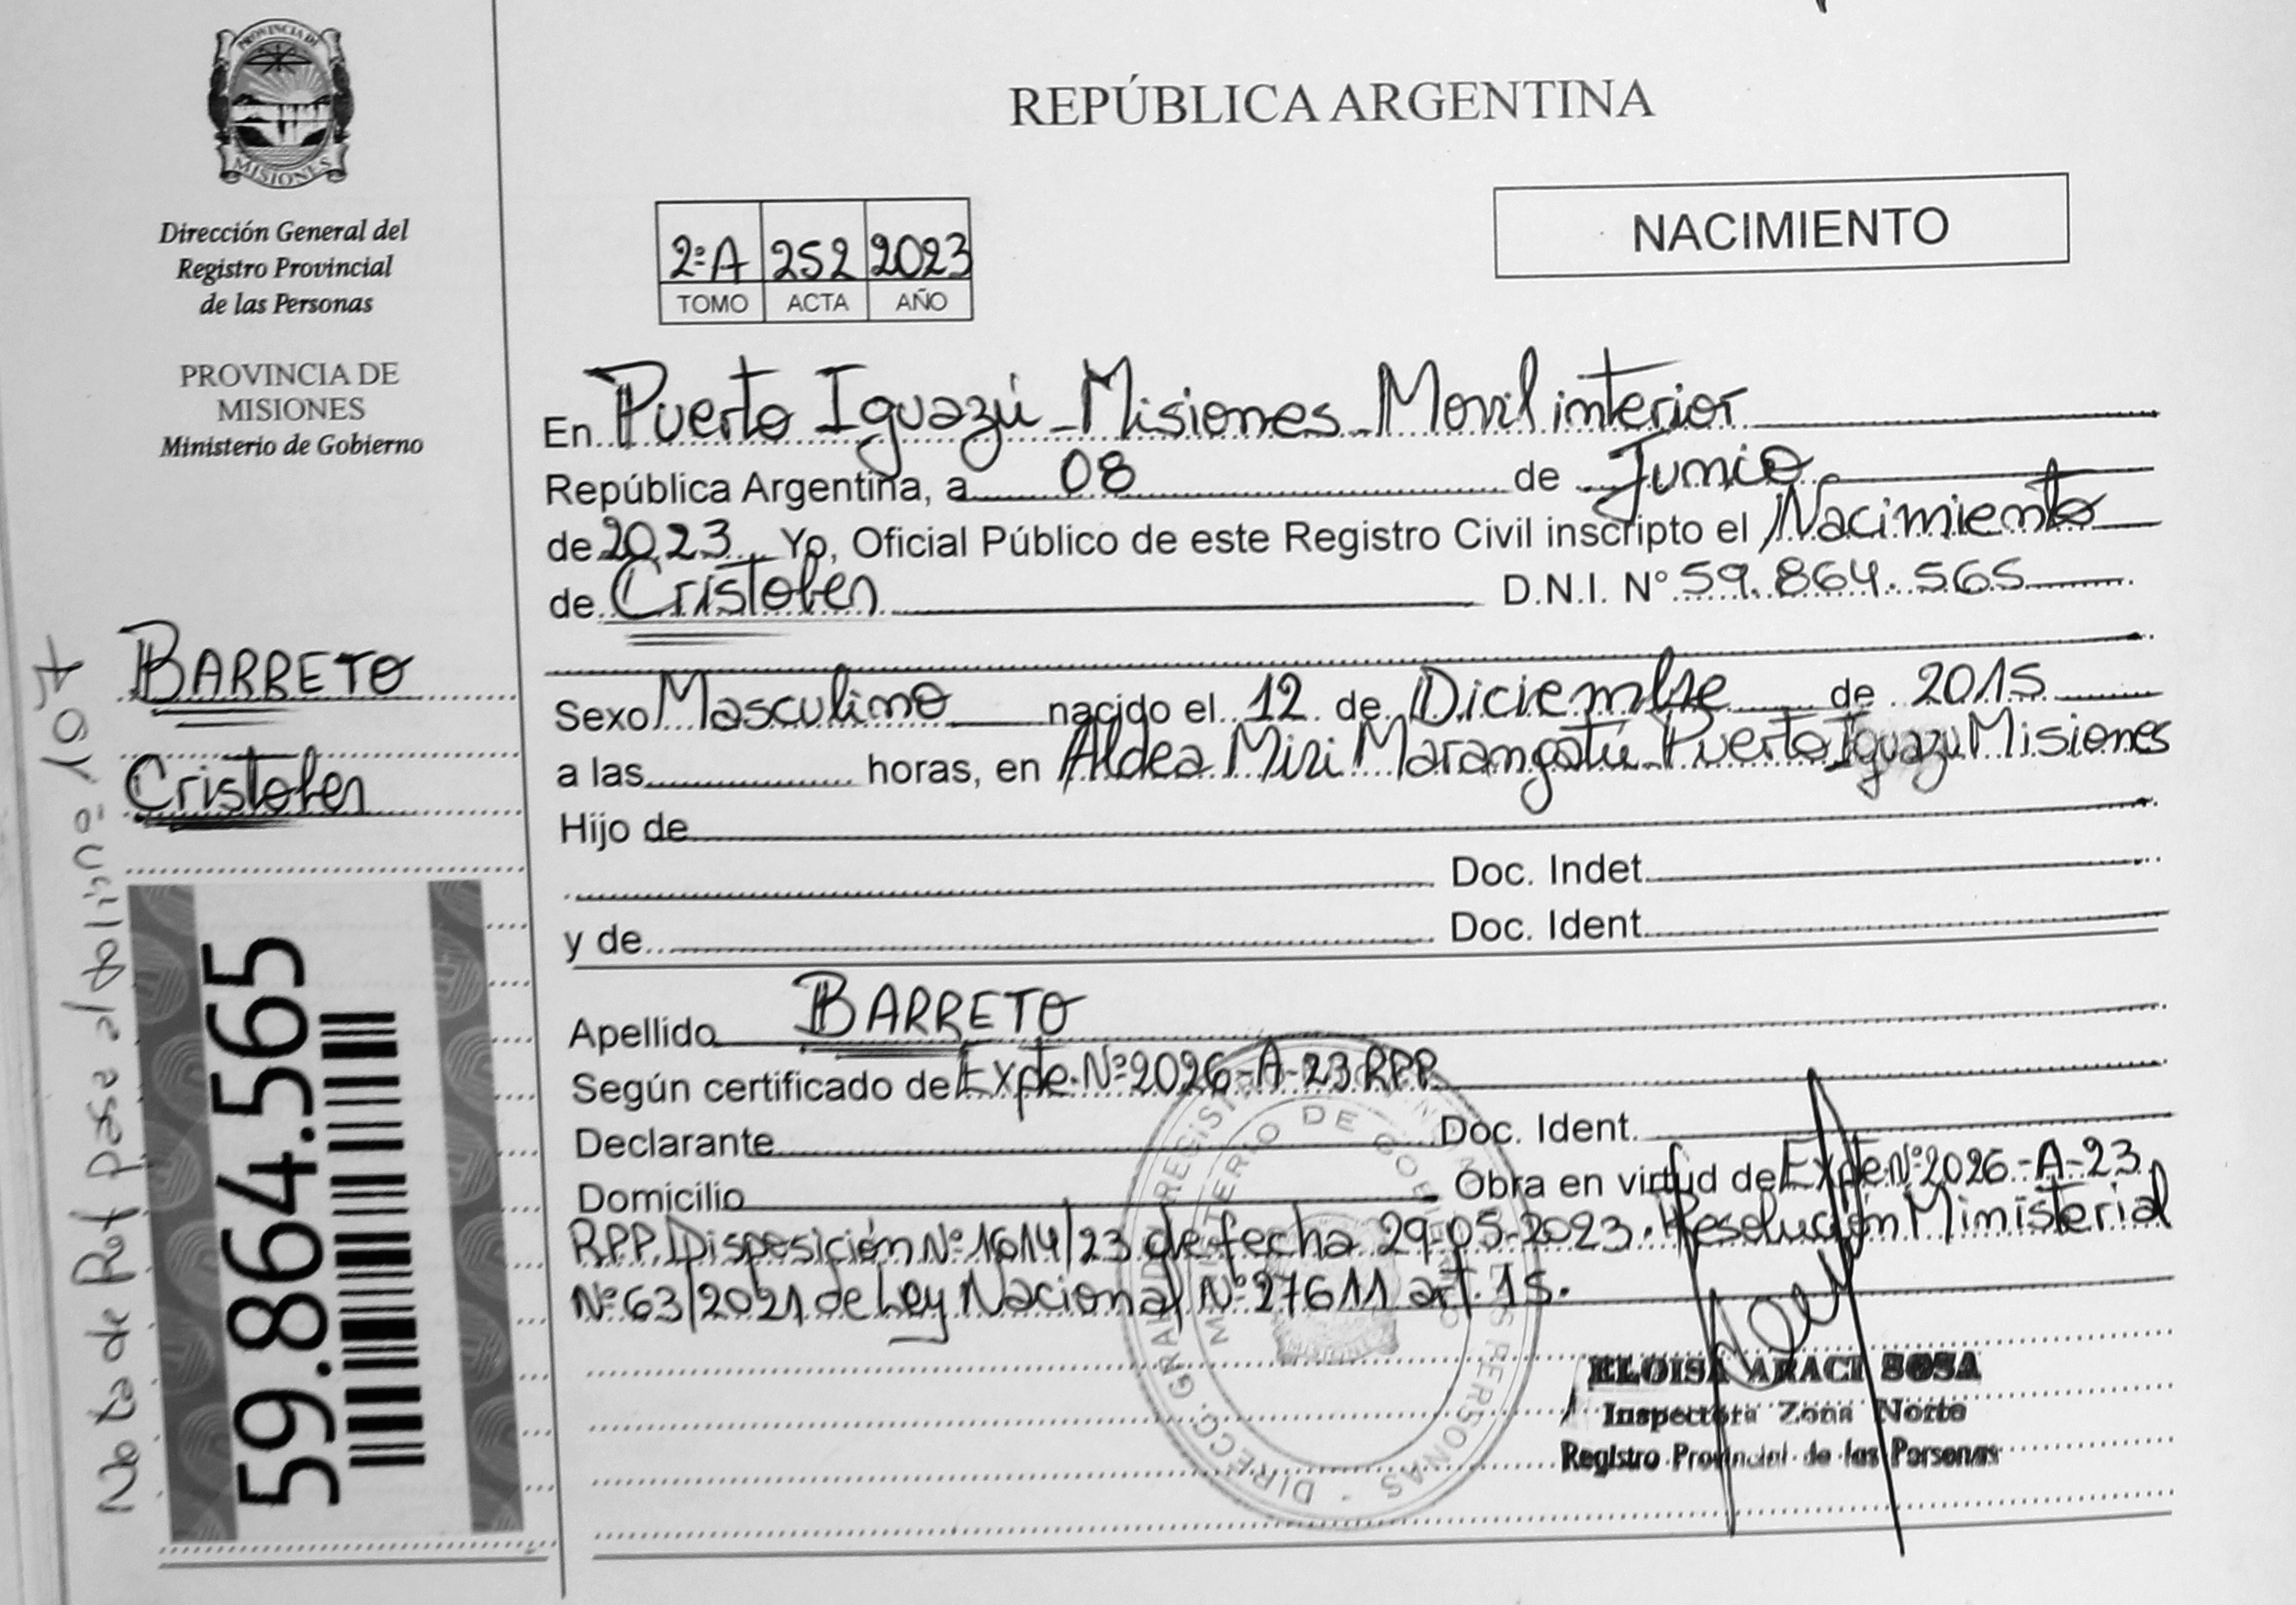 PROVINCIA DE
MISIONES
Dirección General del
Registro Provincial
de las Personas
PROVINCIA DE
MISIONES
Ministerio de Gobierno
BARRETO
Cristofer
59.864.565
Nota de Ref pasa al folio nº 107
REPÚBLICA ARGENTINA
NACIMIENTO
2ºA 252 2023
TOMO ACTA AÑO
En Puerto Iguazú - Misiones - Movil interior
República Argentina, a 08 de Junio
de 2023 Yo, Oficial Público de este Registro Civil inscripto el Nacimiento
de Cristofer D.N.I. N° 59.864.565
Sexo Masculino nacido el 12 de Diciembre de 2015
a las horas, en Aldea Miri Marangatú - Puerto Iguazu Misiones
Hijo de
Doc. Indet.
y de Doc. Ident.
Apellido BARRETO
Según certificado de Expte. Nº 2026-A-23 RPP.
Declarante Doc. Ident.
Domicilio Obra en virtud de Expte Nº 2026-A-23
RPP. Disposición Nº 1614/23 de fecha 29-05-2023. Resolución Ministerial
Nº 63/2021 de Ley Nacional Nº 27611 art. 15.
ELOISA ARACI SOSA
Inspectora Zona Norte
Registro Provincial de las Personas
MINISTERIO DE GOBIERNO